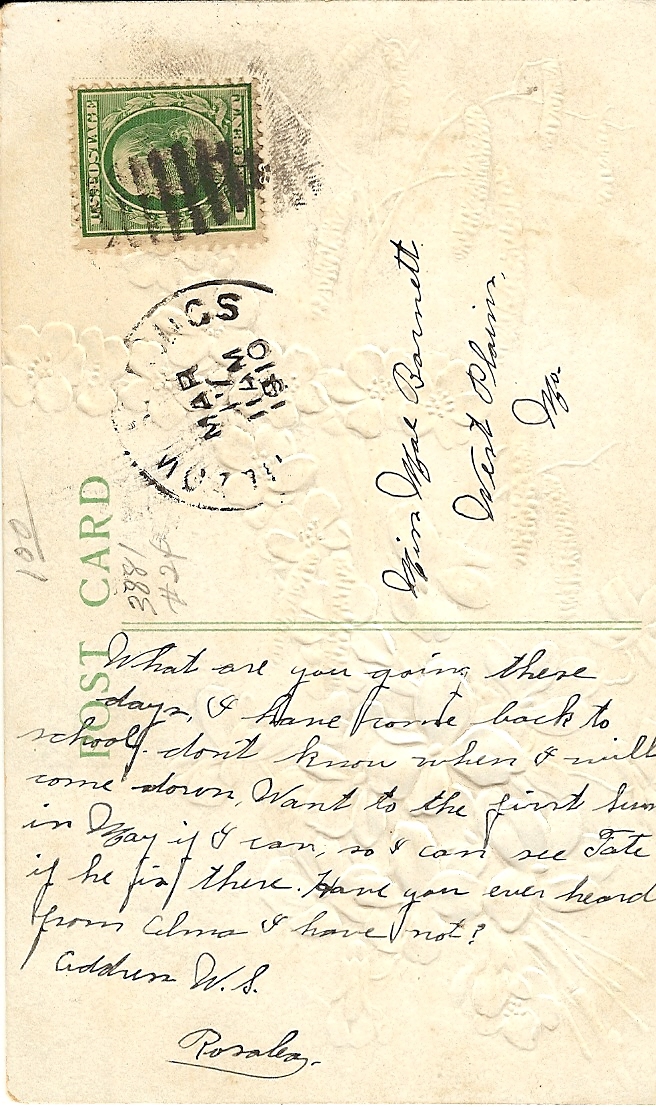 U.S. POSTAGE
INGS
MAR
17
11 AM
1910
POST CARD
100
3881
#20
Miss Mae Barnett
West Plains,
Mo.
What are you going these
days, I have come back to
school. don't know when I will
come down, Want to the first Sun
in May if I can, so I can see Tate
if he is there. Have you ever heard
from Alma I have not?
Address W.S.